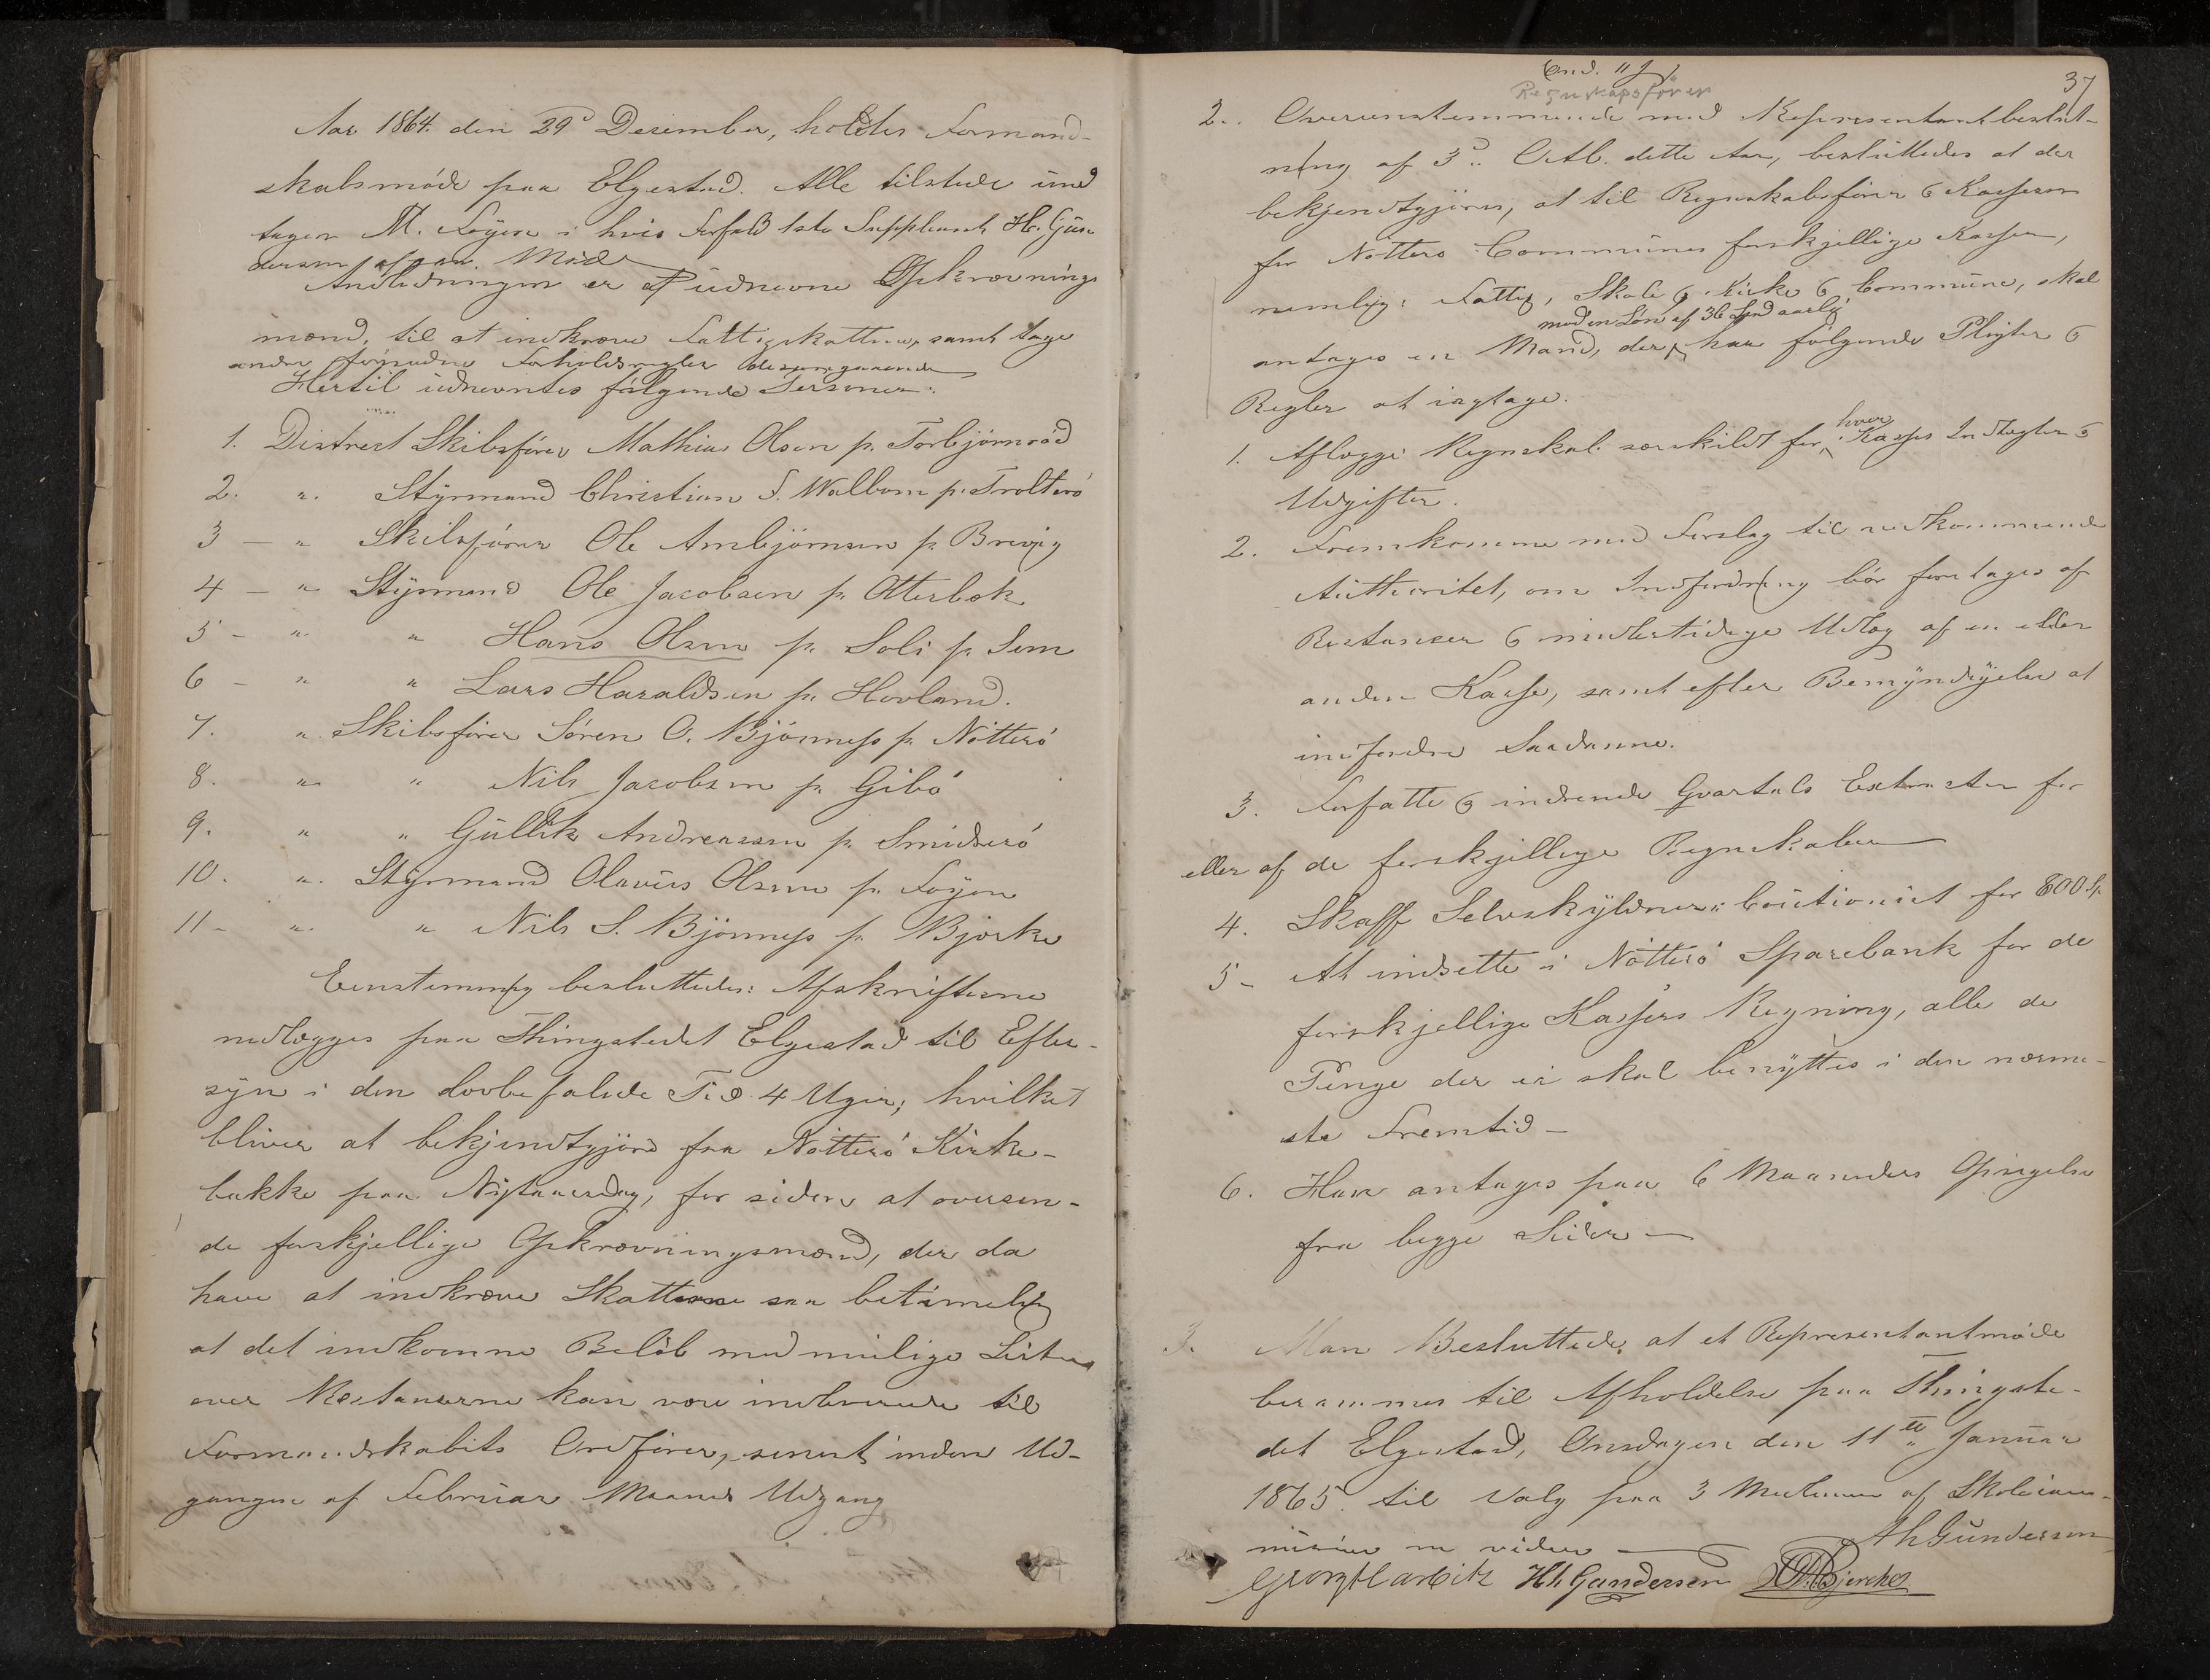 Aar 1864. den 29d Desember, holdtes Formand-
skabsmøde paa Elgestad. Alle tilstede und
tagen M. Føyen i hvis Forfald 1ste Suppleant H. Gun
dersen Møde
Anledningen er at udnevne Opkrævnings
mænd, til at indkræve Fattigskatten, samt tage
andre fornødne Forholdsregler
Hertil udnevntes følgende Personer:
1. Distrect Skibsfører Mathias Olsen p. Torbjørnrød
2. " Styrmand Christian S. Walbom p. Trolterø
3 - " Skibsfører Ole Ambjørnsen p. Brevig
4 - " Styrmand Ole Jacobsen p. Otterbek
5 - " " Hans Olsen p. Soli p. Sem
6 - " " Lars Haraldsen p. Hovland.
7. " Skibsfører Søren O. Bjønness p. Nøtterø
8. " " Nils Jacobsen p. Gibø
9. " " Gullik Andreassen p. Smidserø
10. " Styrmand Olavus Olsen p. Føyen
11 - " " Nils S. Bjønness p. Bjørke
Eenstemmig besluttedes: Afskrifterne
nedlægges paa Thingstedet Elgestad til Efter-
syn i den lovbefalede Tid 4 Uger, hvilket
bliver at bekjendtgjøre fra Nøtterø Kirke-
bakke paa Nytaarsdag, for siden at oversen-
de forskjellige Opkrævningsmænd, der da
have at indkræve Skatterne saa betimelig
at det indkomne Beløb med mulige Lister
over Restanserne kan være indleverede til
Formandskabets Ordfører, senest inden Ud-
gangen af Februar Maaned Udgang
37
Regnskapsfører
2. Overensstemmende med Representantbeslut-
ning af 3d Octb. dette Aar, besluttedes at der
bekjendtgjøres, at til Regnskabsfører & Kasserer
for Nøtterø Communes forskjellige Kasser,
nemlig: Fattig, Skole & Kirke & Commune, skal
med en Løn af 36 Spd aarlig
antages en Mand, der har følgende Pligter &
Regler at iagtage.
hver
1. Aflægge Regnskab særskildt for Kasses Indtægter &
Udgifter.
2. Fremkomme med Forslag til vedkommende
Authoritet, om Indfordring bør foretages af
Restanser & midlertidige Udlæg af en eller
anden Kasse, samt efter Bemyndigelse at
indfordre Saadanne.
3. Forfatte & indsende Qvartals Extracter for
eller af de forskjellige Regnskaber
4. Skaffe Selvskyldner Coutionist for 800 Sp.
5 - At indsette i Nøtterø Sparebank for de
forskjellige Kassers Regning, alle de
Penge der ei skal benyttes i den nærme-
ste Fremtid -
6. Han antages paa 6 Maaneders Opsigelse
fra begge Sider -
3. Man Besluttede at et Representantmøde
berammes til Afholdelse paa Thingste-
det Elgestad, Onsdagen den 11te Januar
1865 til Valg paa 3 Medlemmer af Skolecom-
misionen m videre
A h Gundersen
Georg Harbitz H h Gundersen Bjerche